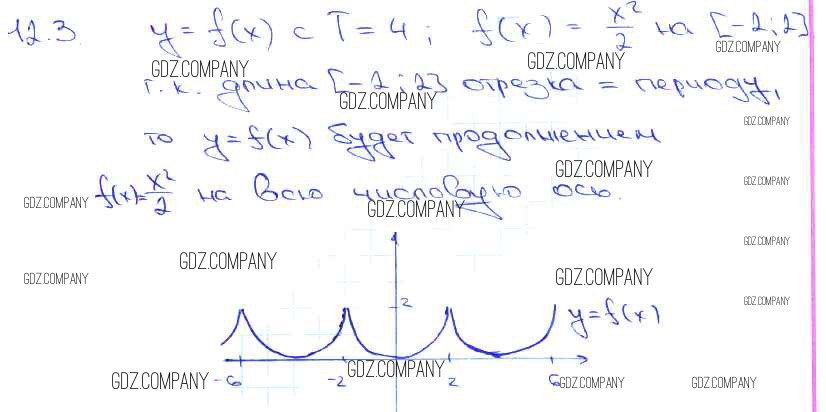 12.3 y = f(x) с T = 4 ; f(x) = x²/2 на [-2; 2]
GDZ.COMPANY GDZ.COMPANY GDZ.COMPANY
т.к. длина [-2; 2] отрезка = периоду,
GDZ.COMPANY GDZ.COMPANY
то y = f(x) будет продолжением
GDZ.COMPANY GDZ.COMPANY
f(x)= x²/2 на всю числовую ось.
GDZ.COMPANY GDZ.COMPANY
GDZ.COMPANY GDZ.COMPANY
GDZ.COMPANY GDZ.COMPANY
2 y = f(x) GDZ.COMPANY
-6 -2 2 6
GDZ.COMPANY GDZ.COMPANY GDZ.COMPANY GDZ.COMPANY